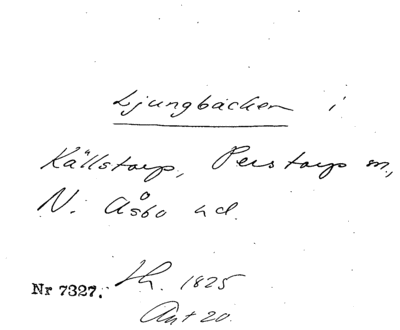 Ljungbäcken i
Källstorp, Perstorps sn,
N. Åsbo hd.
Nr 7327. Lh. 1825
Ant 20.